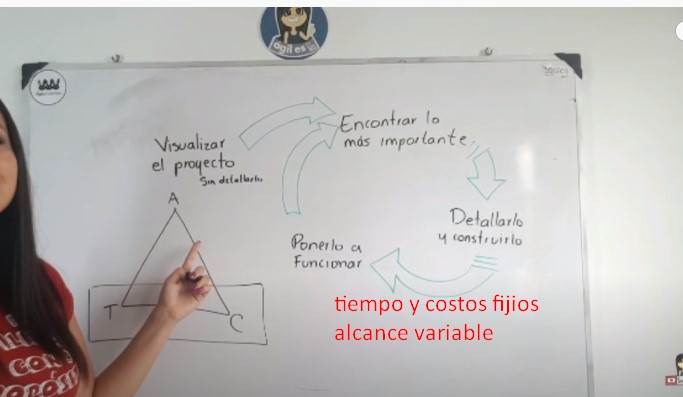 agiles
Visualizar
el proyecto
Sin detallarlo
Encontrar lo
más importante
Detallarlo
y construirlo
Ponerlo a
Funcionar
A
T
C
tiempo y costos fijios
alcance variable
CON